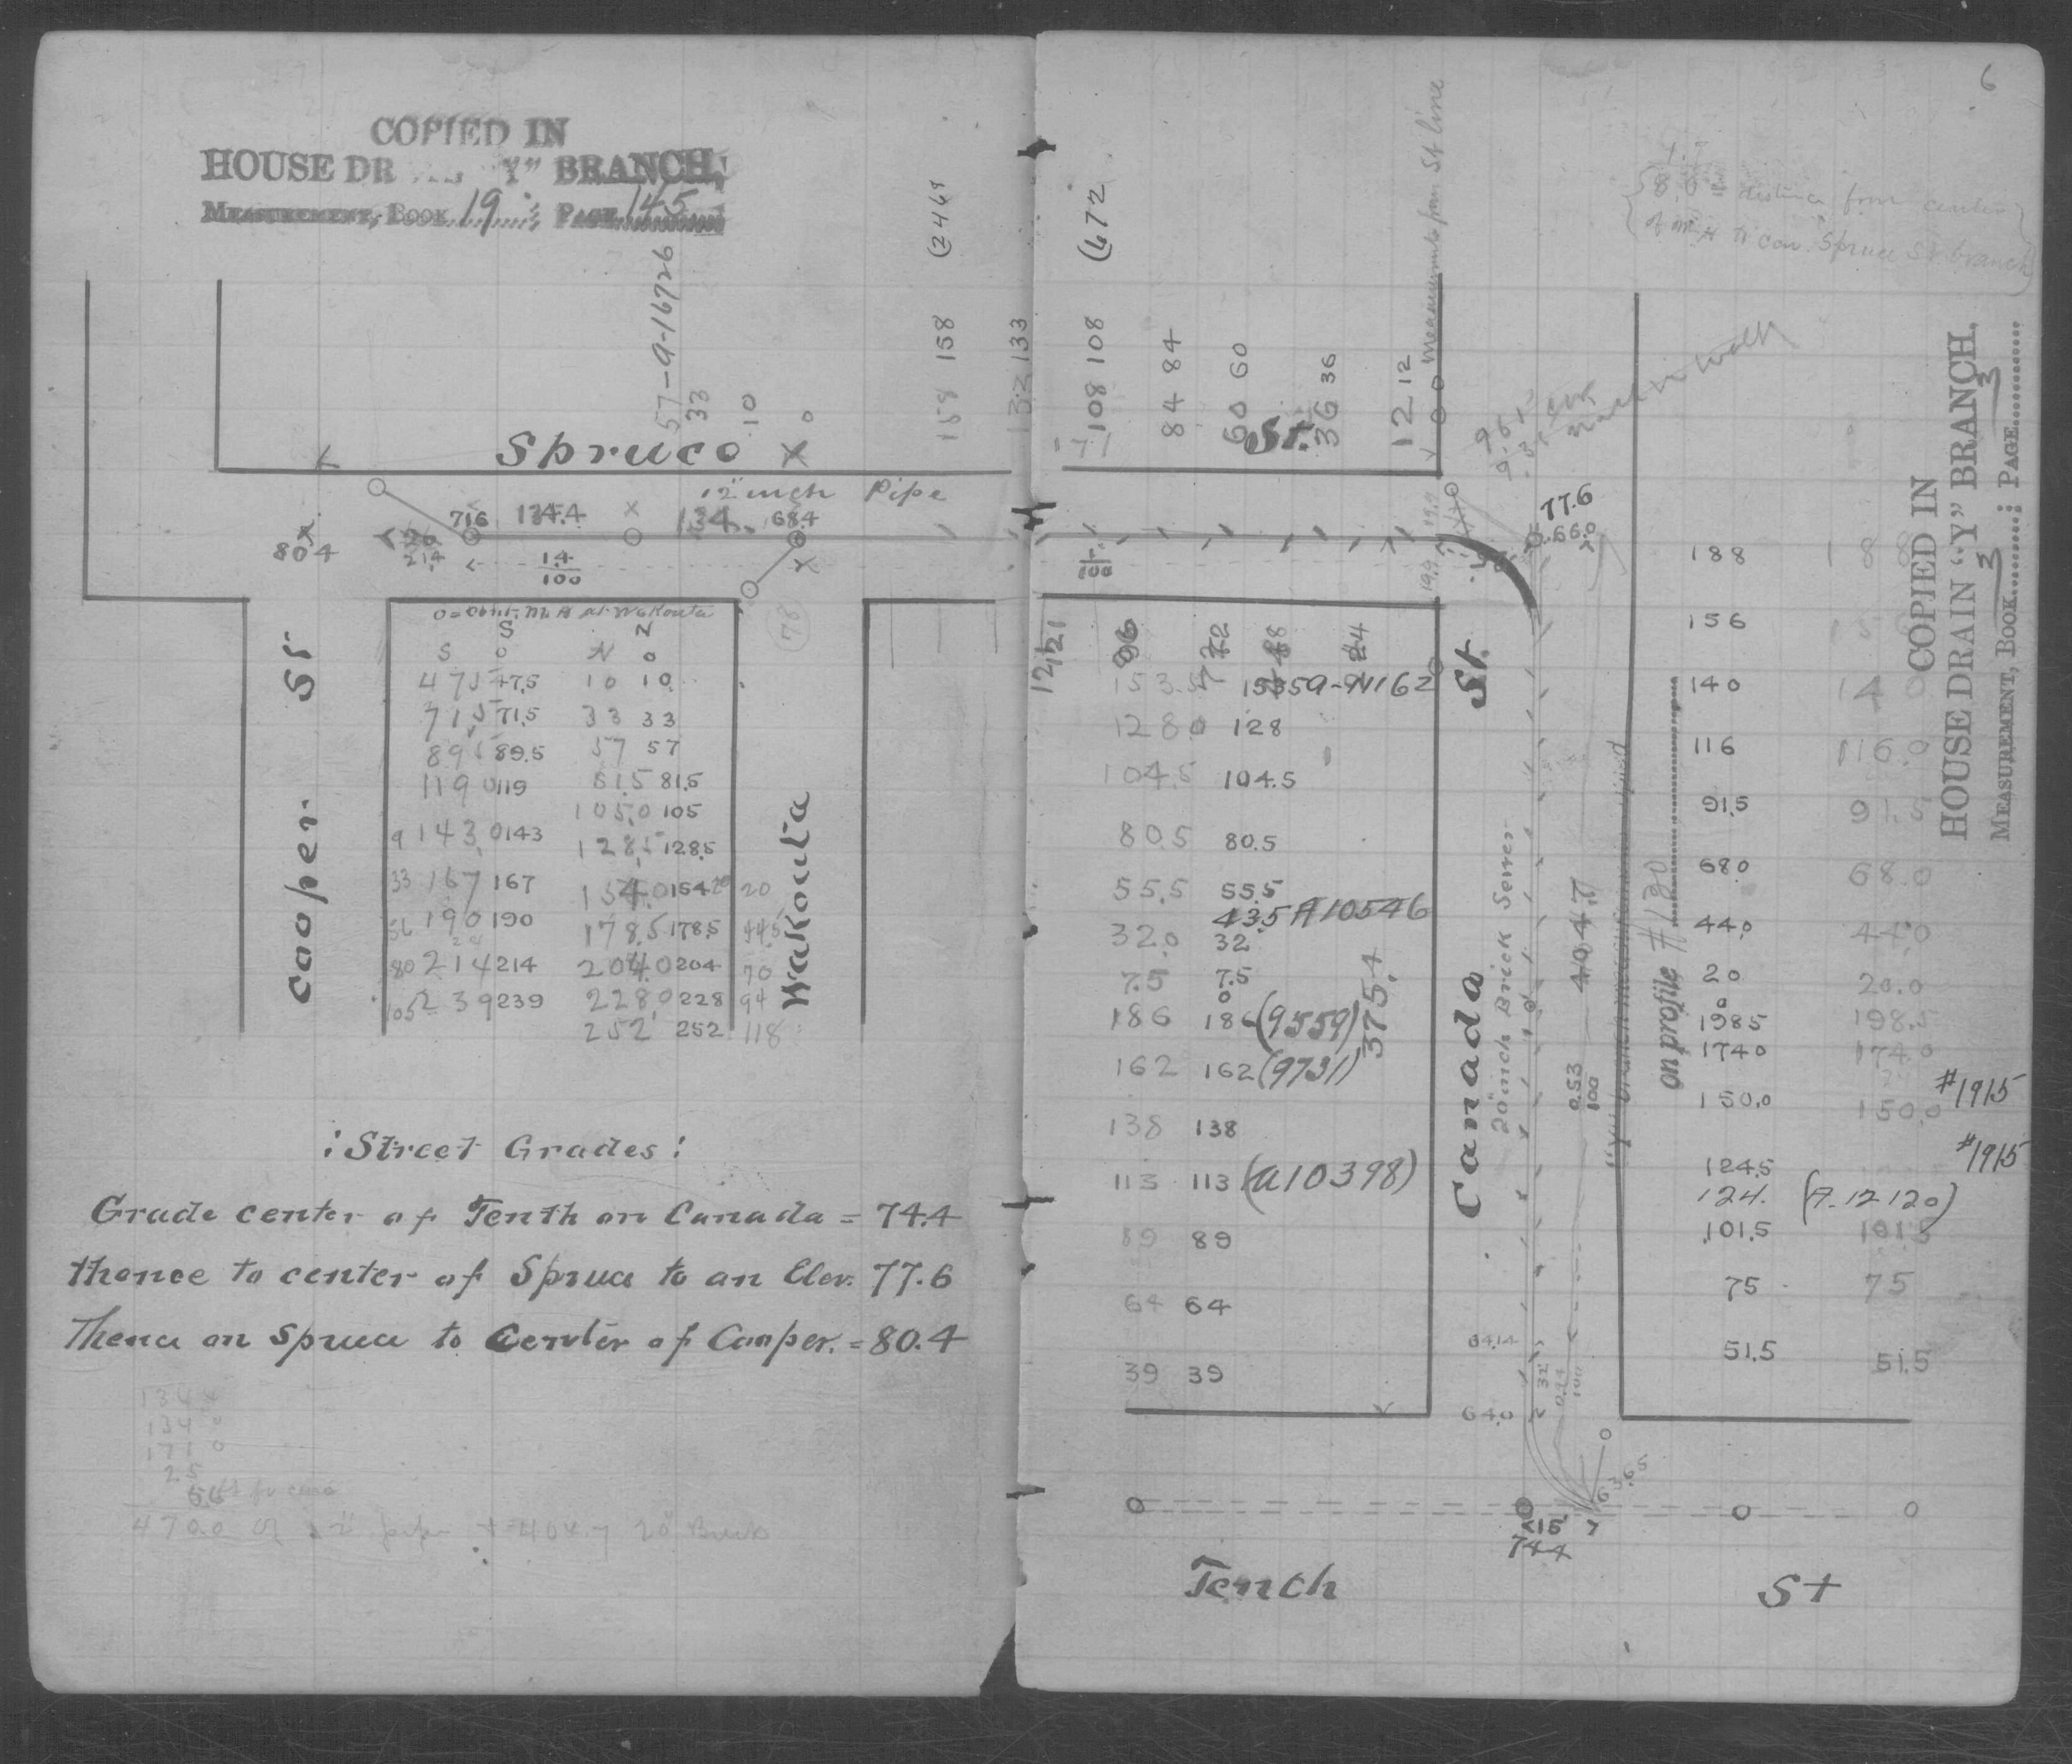 COPIED IN
HOUSE DR Y" BRANCH,
MEASUREMENT, BOOK 19 ; PAGE 145
57-9-16726
33
10
0
158 158
132 133
Spruce X
12" inch Pipe
716 134.4 X 134. 68.4
80.4
21.4
1.4
100
78
0 = cent. M.H. at Wakouta
S N
S O N O
475 47.5 10 10
71.5 71.5 33 33
89.5 89.5 57 57
119 0 119 81.5 81.5
105.0 105
9 143.0 143 128.5 128.5
33 167 167 154.0 154 20 20
56 190 190 178.5 178.5 44.5
80 214 214 204.0 204 70
105 239 239 228.0 228 94
252 252 118
Cooper St
Wakouta
: Street Grades :
Grade center of Tenth on Canada = 74.4
thence to center of Spruce to an Elev. 77.6
Thence on Spruce to Center of Cooper. = 80.4
134.4
134 0
171 0
25
5.6
470.0 of 12" pipe + 404.7 20" Brick
6
58.0 distance from center
of M.H. to cor. Spruce St branch
(672
108 108
84 84
60 60
36 36
12 12
0 0 measurements from St line
171
St.
19.9
19.9
77.6
66.0
1.
100
121
121
96
72 72
48
24
153.5 153 59-9162
128.0 128
104.5 104.5
80.5 80.5
55.5 55.5
43.5 A10546
32.0 32
7.5 7.5
0
186 186 (9559)
162 162 (9731)
375.4
138 138
113 113 (A10398)
89 89
64 64
39 39
Canada St.
20 inch Brick Sewer
404.7
0.53
100
on profile #130
188 188
156 156
140 140
116 116.0
91.5 91.5
68.0 68.0
44.0 44.0
20 20.0
0
198.5 198.5
174.0 174.0
150.0 150.0 #1915
124.5 #1915
124. (A.12120)
101.5 101.5
75 75
51.5 51.5
COPIED IN
HOUSE DRAIN "Y" BRANCH.
MEASUREMENT, BOOK 3 ; PAGE 3
64.14
64.0
32
63.65
15'
74.4
Tenth St